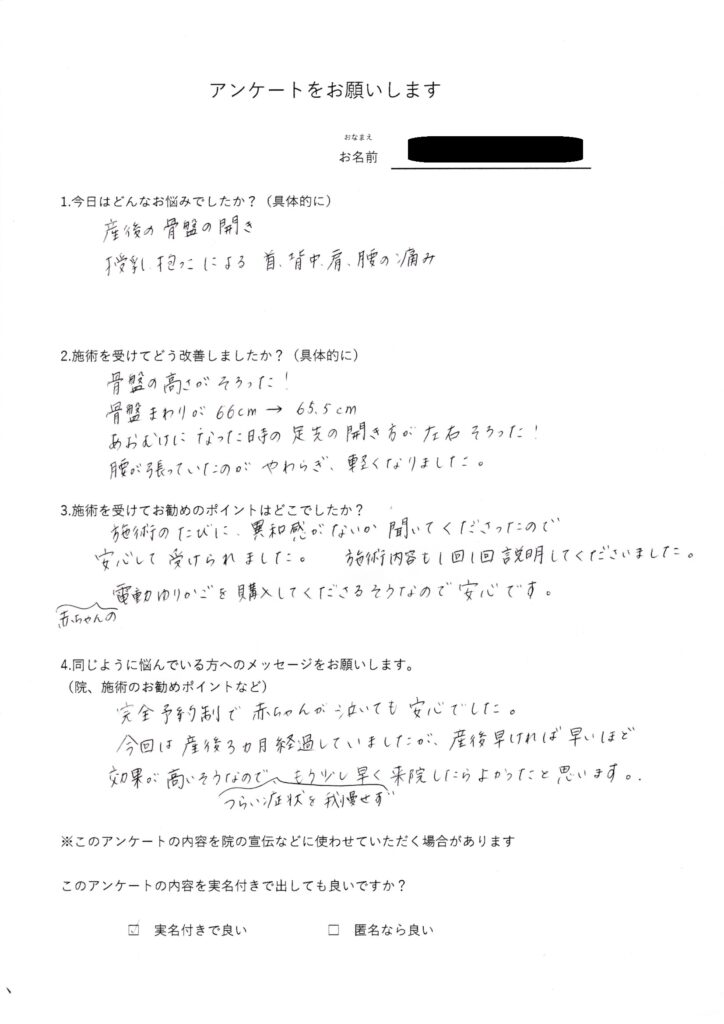 アンケートをお願いします
おなまえ
お名前
1.今日はどんなお悩みでしたか？（具体的に）
産後の骨盤の開き
授乳、抱っこによる 首、背中、肩、腰の痛み
2.施術を受けてどう改善しましたか？（具体的に）
骨盤の高さがそろった！
骨盤まわりが 66cm → 65.5cm
あおむけになった時の足先の開き方が左右そろった！
腰が張っていたのが やわらぎ、軽くなりました。
3.施術を受けてお勧めのポイントはどこでしたか？
施術のたびに、異和感がないか聞いてくださったので
安心して受けられました。 施術内容も1回1回説明してくださいました。
電動ゆりかごを購入してくださるそうなので安心です。
赤ちゃんの
4.同じように悩んでいる方へのメッセージをお願いします。
（院、施術のお勧めポイントなど）
完全予約制で赤ちゃんが泣いても安心でした。
今回は産後3カ月経過していましたが、産後早ければ早いほど
効果が高いそうなので、もう少し早く来院したらよかったと思います。
つらい症状を我慢せず
※このアンケートの内容を院の宣伝などに使わせていただく場合があります
このアンケートの内容を実名付きで出しても良いですか？
☑ 実名付きで良い ☐ 匿名なら良い